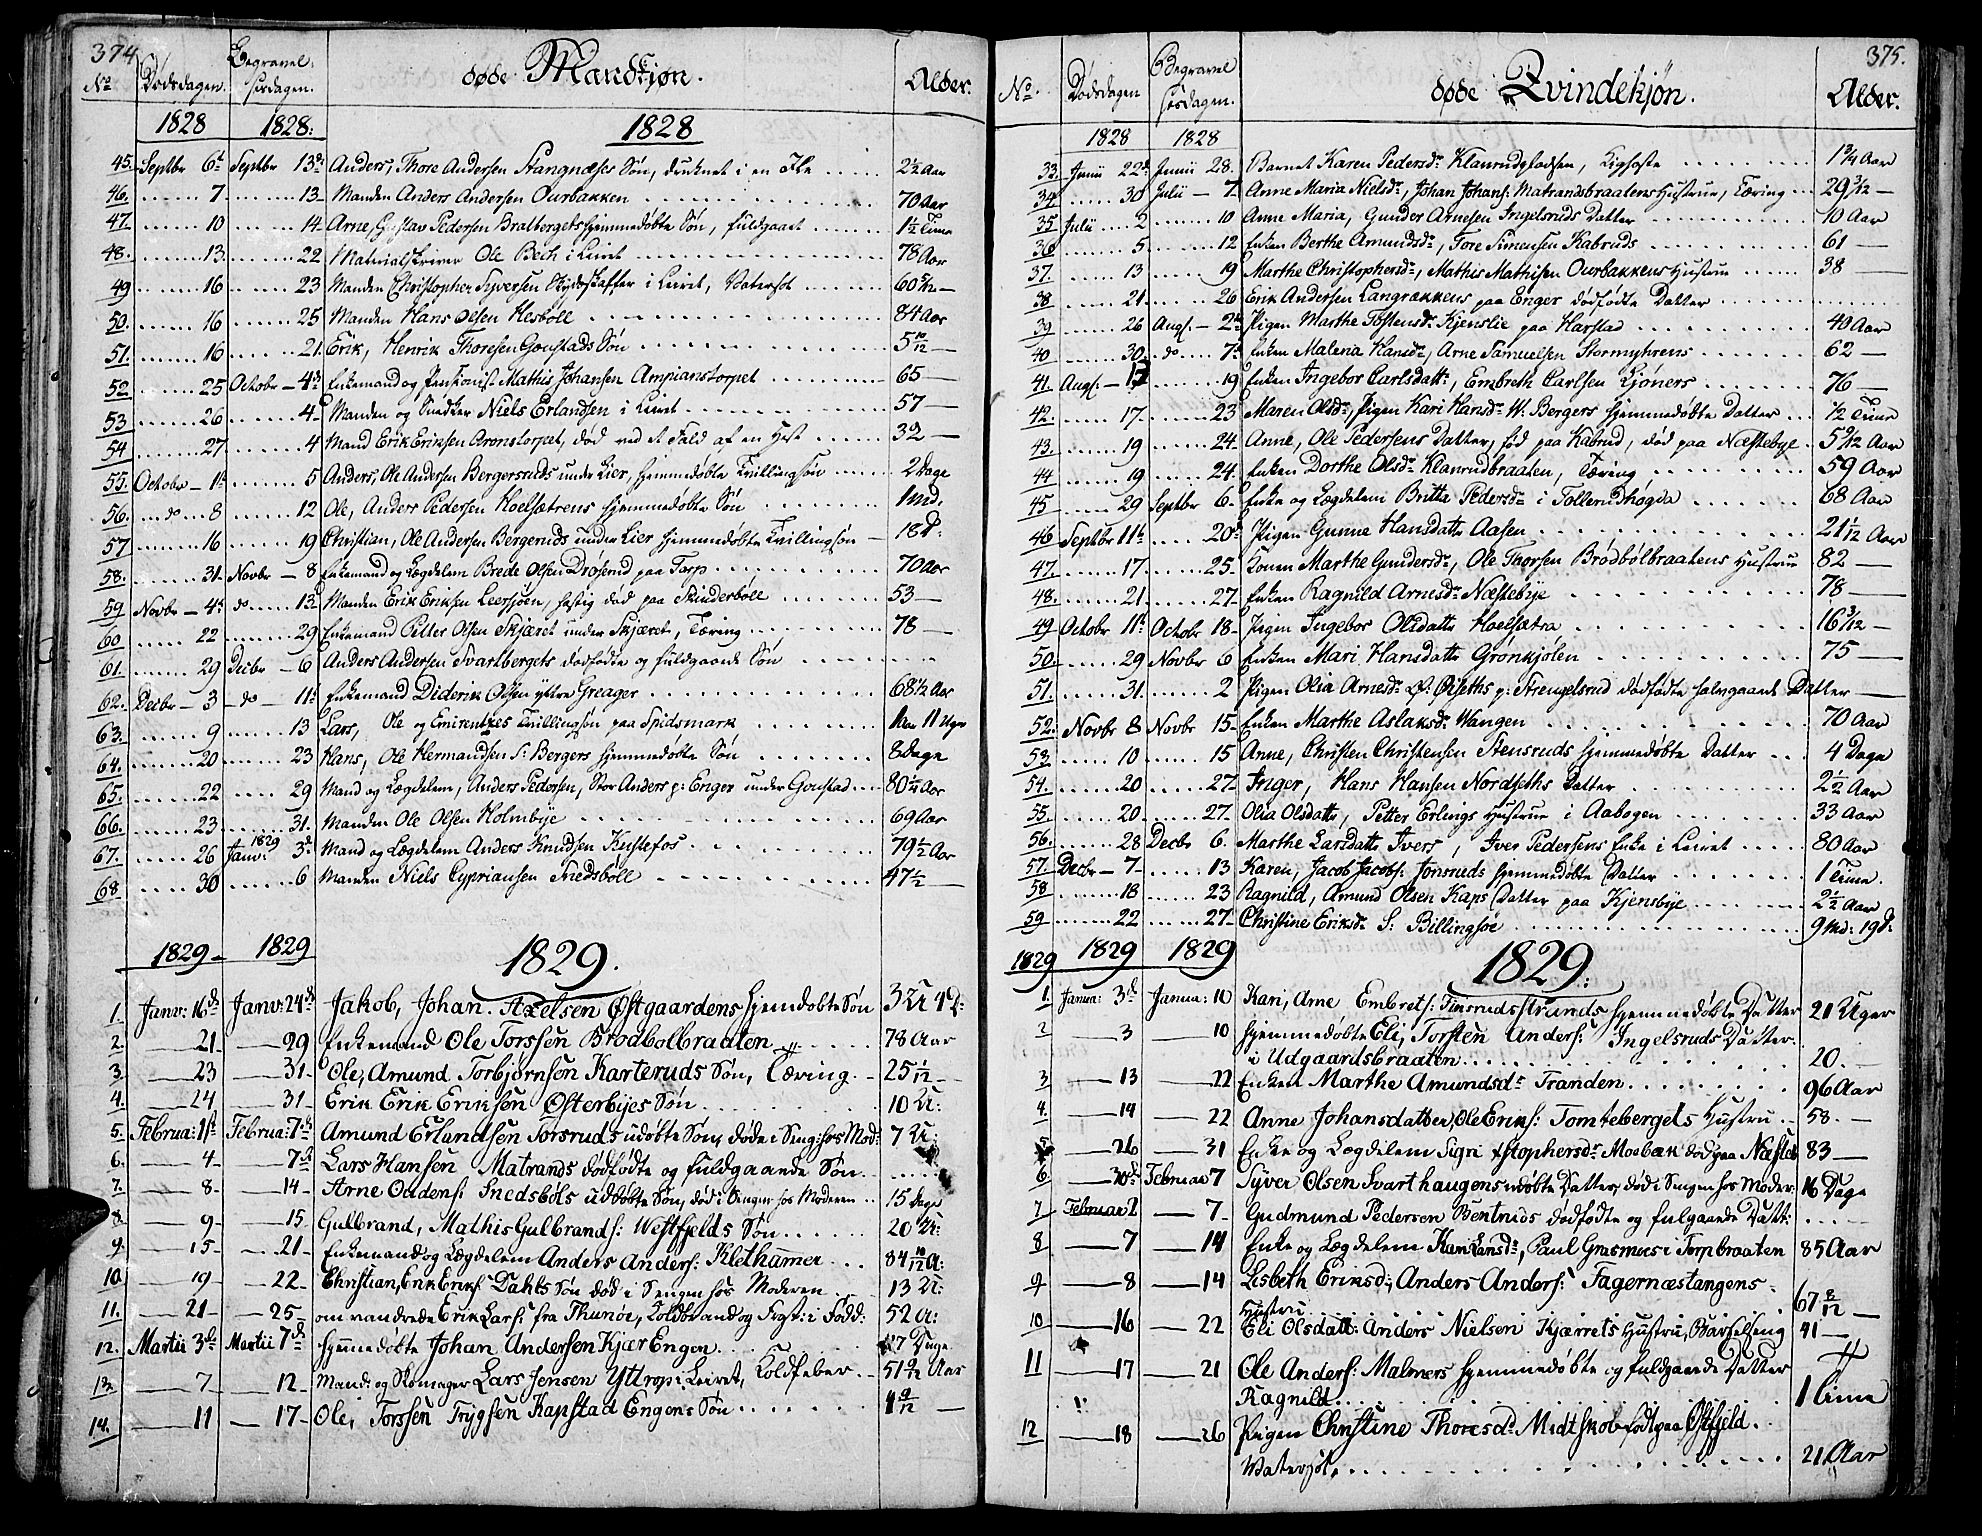 374
No
Dødsdagen.
Begravelsesdagen.
døde Mandkjøn.
Alder.
1828 1828: 1828
45. Septbr 6t Septbr 13de Anders, Thore Andersen Stangnæses Søn, druknet i en 2½ Aar
46. 7 13 Manden Anders Andersen Ourbakken 70 Aar
47. 10 14 Arne, Gustav Pedersen Bralbergets hjemmedøbte Søn, fuldgaaet 1½ Time
48. 13 22 Materialskriver Ole Bech i Leiret 78 Aar
49 16 23 Manden Christopher Syversen Skydsskaffer i Leiret, Vatersot 60 5/12 —
50. 16 25 Manden Hans Olsen Hesbøll 84 Aar
51. 16 21 Erik, Henrik Thoresen Gonstads Søn 5 10/12 —
52 25 Octobr — 4de Enkemand og Pensionist Mathis Johansen Ampianstorpet 65 —
53 26 4 Manden og Snedker Niels Erlandsen i Leiret 57
54 27 4 Mand Erik Eriksen Aronstorpet, død ved et Fald af en Hest 32 —
55. Octobr — 1t 5 Anders, Ole Andersen Bergersruds under Lier, hjemmedøbte Tvillingsøn 2 Dage
56. do 8 12 Ole, Anders Pedersen Hoelsætrens hjemmedøbte Søn 1 Md.
57 16 19 Christian, Ole Andersen Bergeruds under Lier hjemmedøbte Tvillingsøn — 18 D.
58. 31. Novbr — 8 Enkemand og Lægdelem Brede Olsen Drøserud paa Tarp 70 Aar
59 Novbr — 4de do 13 Manden Erik Eriksen Leersjøen, hastig død paa Skinderbøll 53 —
60 22 29 Enkemand Petter Olsen Skjæret under Skjæret, Tæring 78 —
61. 29 Decbr — 6 Anders Andersen Svartbergets dødfødte og fuldgaaede Søn
62. Decbr — 3 — do — 11te Enkemand Diderik Olsen yttre Greager 68½ Aar
63. 9 13 Lars, Ole og Emirentzes Tvillingsøn paa Spidsmark 1 Aar 11 Uger
64. 20 23 Hans, Ole Hermandsen S. Bergers hjemmedøbte Søn 8 Dage
65. 22 29 Mand og Lægdelem, Anders Pedersen, Stor Anders p: Enger under Gonstad 80½ Aar
66. 23 31. Manden Ole Olsen Holmbye 69 Aar
67. 26 1829 Janv: 3d Mand og Lægdelem Anders Knudsen Kustefos 79½ Aar
68 30 6 Manden Niels Cypriansen Snedsbøll 47½ —
1829 1829 1829.
1. Janv: 16de Janv: 24de Jakob, Johan Axelsen Østgaardens hjemdøbte Søn 3 U 4 D:
2. 21 29 Enkemand Ole Torssen Brodbolbraaten 78 Aar
3. 23 31 Ole, Amund Torbjørnsen Karteruds Søn, Tæring. 25 1/12
4. 24 31 Erik Erik Eriksen Østerbyes Søn 10 U:
5. Februa: 1st Februa: 7de Amund Erlandsen Torsruds udøbte Søn, døde i Seng: hos Mod: 7 U:
6. 4 7de Lars Hansen Matrands dødfødte og fuldgaaende Søn
7. 8 14 Arne Oudens: Snedsbøls udøbte Søn, død i Sengen hos Moderen 15 Dage
8 9 15 Gulbrand, Mathis Gulbrands: Westfjelds Søn 20 U:
9. 15 21 Enkemand og Lægdelem Anders Anders: Klethamer 84 10/12 A:
10. 19 22 Christian, Erik Eriks: Dahls Søn død i Sengen hos Moderen 13 U:
11. 21 25 omvandrede Erik Lars: fra Thunøe, Koldbrand og Frost: i Fødd: 52 A:
12. Martii 3de Martii 7de hjemmedøbte Johan Andersen Kjær Engen 7 Dage
13. 7 12 Mand: og Skomager Lars Jensen Yttrop i Leiret, Koldfeber 51 2/12 Aar
14. 11 17 Ole, Torssen Trygsen Kapstad Engens Søn
375.
No.
Dødsdagen
Begravelsesdagen.
døde Qvindekjøn.
Alder.
1828 1828
33. Junii 22d Junii 28. Barnet Karen Pedersdr Klanrudpladsen, Kighoste 1¾ Aar
34 30 Julii — 7. Anne Maria Nielsdr, Johan Johans: Matrandsbraatens Hustrue, Tæring 29 3/12 —
35 Julii 2 10 Anne Maria, Gunder Arnesen Ingelsruds Datter 10 Aar
36 5 12 Enken Berthe Amundsdr, Tore Simensen Kabruds 61 —
37. 13 19 Marthe Christophersdr, Mathis Mathisen Ourbakkens Hustrue 38
38 21 26 Erik Andersen Langrækkens paa Enger dødfødte Datter
39 26 Augs. — 2de Pigen Marthe Tostensdr Kjenslie paa Harstad 40 Aar
40 30 do 7de Enken Malena Hansdr, Arne Samuelsen Stormyhrens 62 —
41. Augs: — 17 19 Enken Ingebor Carlsdattr, Embreth Carlsen Kjøners 76 —
42. 17. 23 Maren Olsdr, Pigen Kari Hansdr W. Bergers hjemmedøbte Datter ½ Time
43. 19 24. Anne, Ole Pedersens Datter, fød paa Kabrud, død paa Næstebye 5 9/12 Aar
44 19 24. Enken Dorthe Olsdr Klanrudbraaten, Tæring 59 Aar
45 29 Septbr 6. Enke og Lægdelem Britta Pedersdr i Tollerudhøgda 68 Aar
46 Septbr 11te 20de Pigen Gunne Hansdattr Aasen 21 1/12 Aar
47. 17 25. Konen Marthe Gundersdr, Ole Thorsen Brødbølbraatens Hustrue 82 —
48. 21 27. Enken Ragnild Arnesdr Næstebye 78 —
49 Octobr 11te Octobr 18 Pigen Ingebor Olsdattr Hoelsætra 16 3/12 —
50. 29 Novbr 6 Enken Mari Hansdattr Gronkjølen 75 —
51. 31. 2 Pigen Olia Arnesdr Ø: Øiseths p: Strengelsrud dødfødte halvgaaede Datter —
52. Novbr 8 Novbr 15 Enken Marthe Aslaksdr Wangen 70 Aar
53. 10 15 Anne, Christen Christensen Stensruds hjemmedøbte Datter 4 Dage
54. 20 27 Inger, Hans Hansen Nordseths Datter 2½ Aar
55. 20 27. Olia Olsdattr, Petter Erlings Hustrue i Aabogen 33 Aar
56. 28 Decbr 6. Marthe Larsdattr Ivers, Iver Pedersens Enke i Leiret 80 Aar
57. Decbr — 7 13 Karen, Jacob Jacobs: Jonsruds hjemmedøbte Datter 1 Time.
58 18 23 Ragnild, Amund Olsen Kaps Datter paa Kjensbye 2½ Aar
59 22 27. Christine Eriksdr S: Billingsøe 9 Md: 19 d:
1829 1829 1829 1829:
1. Janua: 3d Janua: 10 Kari, Arne Embrets: Finsrudsstrands hjemmedøbte Datter 21 Uger
2 3 10 hjemmedøbte Eli, Torsten Anders: Ingelsruds Datter
i Udgaardsbraaten 20.
3 13 22 Enken Marthe Amundsdr Tranden 96 Aar
4. 14 22 Anne Johansdatter, Ole Eriks: Tomtebergets Hustru 58. —
5 26 31 Enke og Lægdelem Sigri Xstophersdr Moebæk død paa Næsteb 83 —
6 30de Februar 7 Syver Olsen Svarthaugens udøbte Datter, død i Sengen hos Moder: 16 Dage
7 Februar 2 7 Gudmund Pedersen Bentruds dødfødte og fulgaaende Datt:
8 7 14 Enke og Lægdelem Kari Larsdr, Paul Grasmus: i Torpbraaten 85 Aar
9 8 14 Lisbeth Eriksd:, Anders Anders: Fagernæstangens
Hustru 67 8/12 —
10 16 22 Eli Olsdatt: Anders Nielsen Kjærrets Hustru, Barselseng 41 —
11 17 21 Ole Anders: Malmers hjemmedøbte og fuldgaaede Datter
Ragnild 1 Time
12 18 26 Pigen Christine Thoresdr Midtskob født paa Østfjeld
Watersot 21 Aar